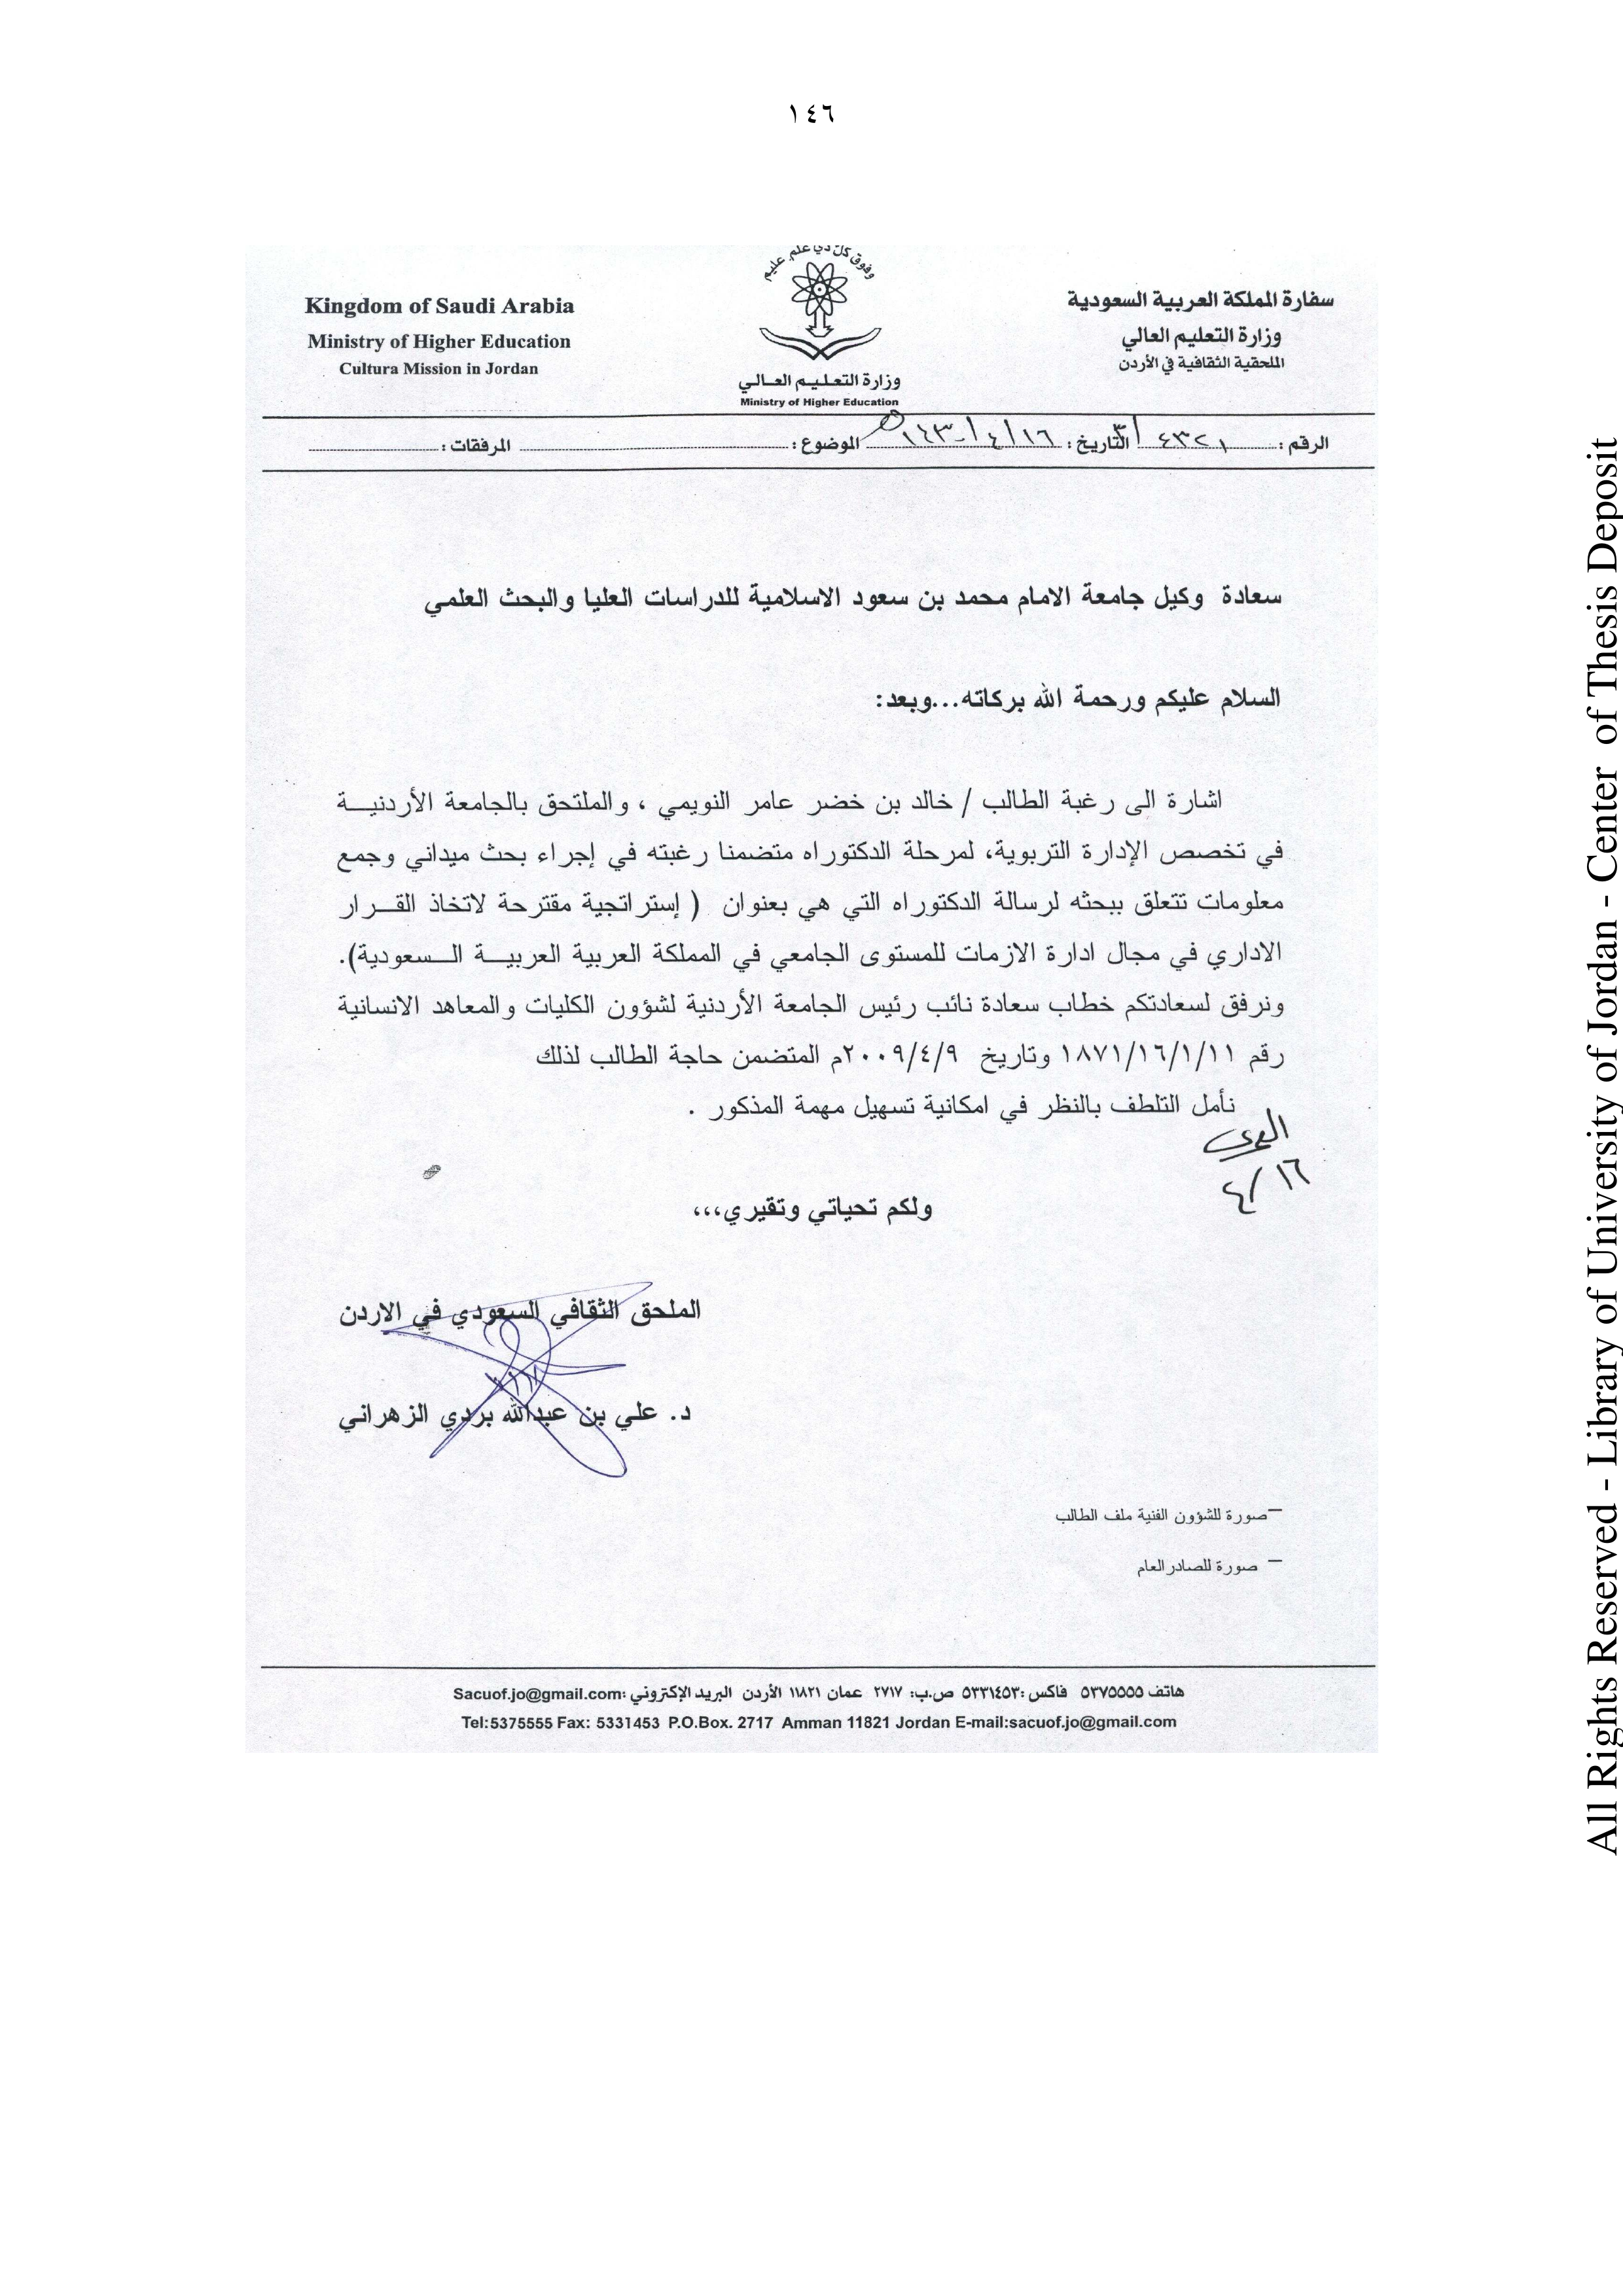 ١٤٦
وفوق كل ذي علم عليم
Kingdom of Saudi Arabia
Ministry of Higher Education
Cultura Mission in Jordan
وزارة التعليم العالي
Ministry of Higher Education
سفارة المملكة العربية السعودية
وزارة التعليم العالي
الملحقية الثقافية في الأردن
الرقم : ٤٣٢١ التاريخ : ١٦/٤/١٤٣٠هـ الموضوع : المرفقات :
سعادة وكيل جامعة الامام محمد بن سعود الاسلامية للدراسات العليا والبحث العلمي
السلام عليكم ورحمة الله بركاته...وبعد:
اشارة الى رغبة الطالب / خالد بن خضر عامر النويمي ، والملتحق بالجامعة الأردنيـــة
في تخصص الإدارة التربوية، لمرحلة الدكتوراه متضمنا رغبته في إجراء بحث ميداني وجمع
معلومات تتعلق ببحثه لرسالة الدكتوراه التي هي بعنوان ( إستراتجية مقترحة لاتخاذ القـــرار
الاداري في مجال ادارة الازمات للمستوى الجامعي في المملكة العربية العربيـــة الـــسعودية).
ونرفق لسعادتكم خطاب سعادة نائب رئيس الجامعة الأردنية لشؤون الكليات والمعاهد الانسانية
رقم ١٨٧١/١٦/١/١١ وتاريخ ٢٠٠٩/٤/٩م المتضمن حاجة الطالب لذلك
نأمل التلطف بالنظر في امكانية تسهيل مهمة المذكور .
١٦/٤
ولكم تحياتي وتقيري،،،
الملحق الثقافي السعودي في الاردن
د. علي بن عبدالله بردي الزهراني
–صورة للشؤون الفنية ملف الطالب
– صورة للصادر العام
هاتف ٥٣٧٥٥٥٥ فاكس :٥٣٣١٤٥٣ ص.ب: ٢٧١٧ عمان ١١٨٢١ الأردن البريد الإكتروني :Sacuof.jo@gmail.com
Tel:5375555 Fax: 5331453 P.O.Box. 2717 Amman 11821 Jordan E-mail:sacuof.jo@gmail.com
All Rights Reserved - Library of University of Jordan - Center of Thesis Deposit